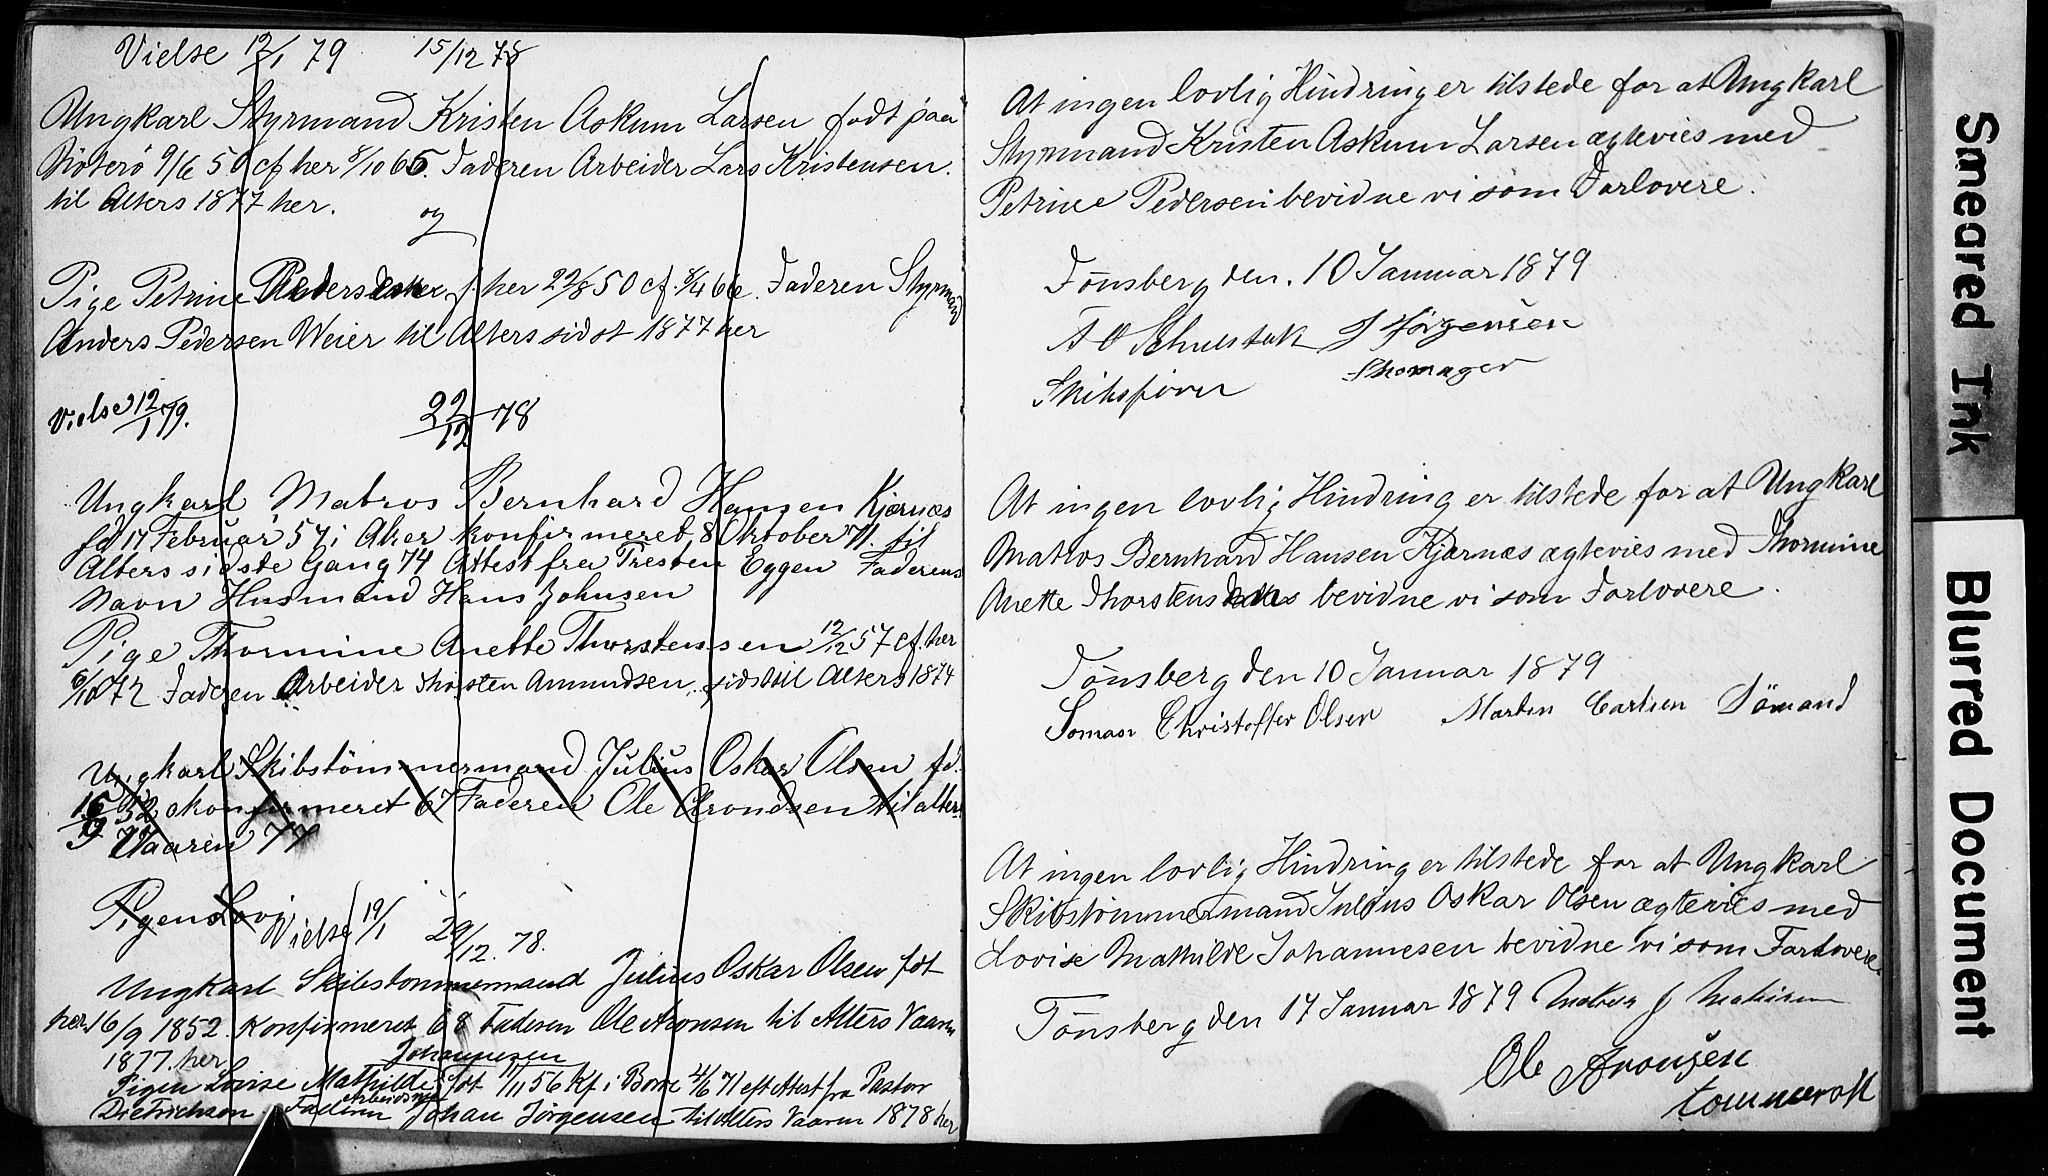 Vielse 12/1 79 15/12 78
Ungkarl Styrmand Kristen Askum Larsen født paa
Nøterö 9/6 50 cf her 8/10 65. Faderen Arbeider Lars Kristensen.
til Alters 1877 her.
og
Pige Petrine Pedersen f. her 22/8 50 cf. 8/4 66. Faderen Styrmand
Anders Pedersen Weier til Alters sidst 1877 her
Vielse 12/1 79. 22/12 78
Ungkarl Matros Bernhard Hansen Kjærnæs
fd 17 Februar 57 i Aker konfirmeret 8 Oktober 71. til
Alters sidste Gang 74 Attest fra Presten Eggen Faderens
Navn Husmand Hans Johnsen
Pige Thormine Anette Thorstensen 12/12 57 cf. her
6/10 72 Faderen Arbeider Thorsten Amundsen, sidst til Alters 1874
Ungkarl Skibstömmermand Julius Oskar Olsen fd.
16/9 52 konfirmeret 67 Faderen Ole Arondsen til alters
Vaaren 77
Pigen Lovi
Vielse 19/1 29/12. 78.
Ungkarl Skibstømmermand Julius Oskar Olsen født
her 16/9 1852. Konfirmeret 68 Faderen Ole Aronsen til Alters Vaaren
1877. her
Johannesen
Pigen Lovise Mathilde født 1/11 56 Kf. i Borre 4/6 71 eft Attest fra Pastor
Arbeidsmd
Dietrichson. Faderen Johan Jørgensen til Alters Vaaren 1878 her
At ingen lovlig Hindring er tilstede for at Ungkarl
Styrmand Kristen Askum Larsen ægtevies med
Petrine Pedersen bevidne vi som Forlovere.
Tönsberg den. 10 Januar 1879
A O Schustak J Jörgensen
Skibsförer Skomager
At ingen lovlig Hindring er tilstede for at Ungkarl
Matros Bernhard Hansen Kjærnæs ægtevies med Thormine
Anette Thorstens bevidne vi som Forlovere.
Tönsberg den 10 Januar 1879
Soman Christoffer Olsen Martin Carlsen Sömand
At ingen lovlig Hindring er tilstede for at Ungkarl
Skibstømmermand Julius Oskar Olsen ægtevies med
Lovise Mathilde Johannesen bevidne vi som Forlovere.
Tönsberg den 17 Januar 1879
Ole Aronsen
Smeared Ink
Blurred Document